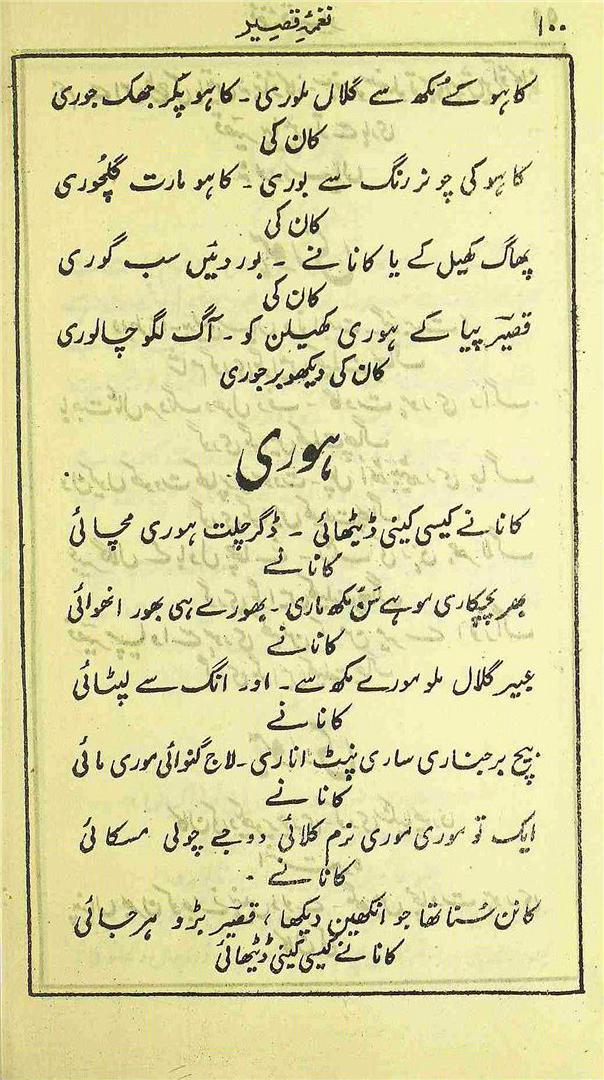 ۱۰۰
نغمۂ قصیر
کاہو کے مُکھ سے گلال ملوری - کاہو پکر جھک جوری
کان کی
کاہو کی چونر رنگ سے بوری - کاہو مارت گلچوری
کان کی
پھاگ کھیل کے یا کانا نے - بور دئیں سب گوری
کان کی
قصیر پیا کے ہوری کھیلن کو - آگ لگو چالوری
کان کی دیکھو برجوری
ہوری
کانا نے کیسی کینی ڈیٹھائی - ڈگر چلت ہوری مچائی
کانا نے
بھر پچکاری موہے سَن مکھ ماری - بھورے ہی بھور انھوائی
کانا نے
عبیر گلال ملو مورے مکھ سے - اور انگ سے لپٹائی
کانا نے
بیچ برجناری ساری نپٹ اناری - لاج گنوائی موری مائی
کانا نے
ایک تو موری موری نرم کلائی دوجے چولی مسکائی
کانا نے -
کانن سُنا تھا جو انکھین دیکھا، قصیر بڑو ہرجائی
کانا نے کیسی کینی ڈیٹھائی